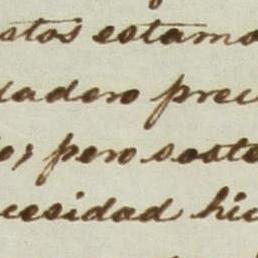 stos estamo
dadero prec
o; pero soste
cesidad hic